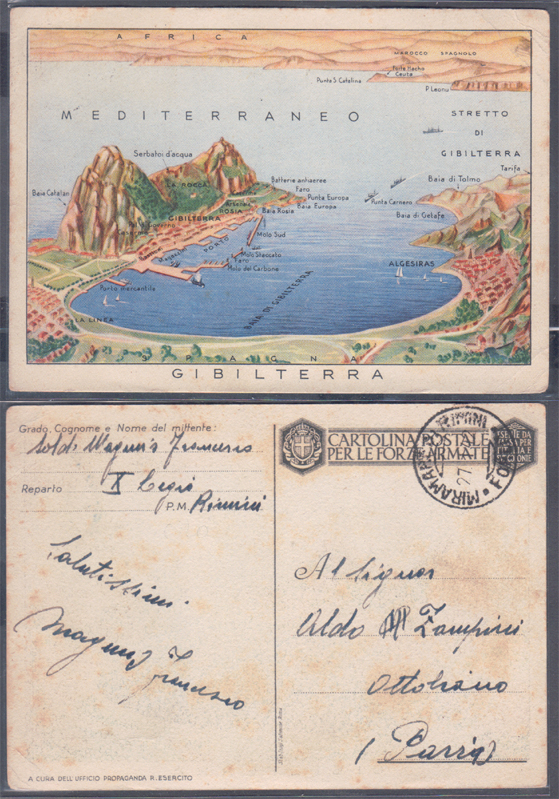 AFRICA
MAROCCO SPAGNOLO
Punta Nacho
Ceuta
Punta S. Catalina
P. Leona
MEDITERRANEO
STRETTO
DI
GIBILTERRA
Serbatoi d'acqua
Tarifa
Batterie antiaeree
Baia di Tolmo
LA ROCCA
Faro
Baia Catalan
Punta Europa
Arsenale
Punta Carnero
Baia Europa
ROSIA
Baia Rosia
GIBILTERRA
Baia di Getafe
Pal. Governo
Molo Sud
PORTO
Molo Staccato
Faro
ALGESIRAS
Molo del Carbone
Porto mercantile
BAIA DI GIBILTERRA
LA LINEA
SPAGNA
GIBILTERRA
Grado, Cognome e Nome del mittente:
Sold. Francesco
Reparto X Legio
P.M. Rimini
CARTOLINA POSTALE
PER LE FORZE ARMATE
MIRAMARE RIMINI
27
Salutissimi
Francesco
Al Signor
Aldo Zampini
Ottobiano
(Pavia)
A CURA DELL'UFFICIO PROPAGANDA R. ESERCITO